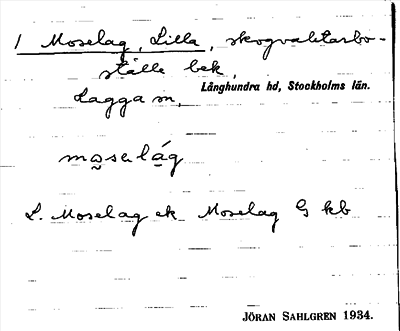 1 Moselag, Lilla, skogvaktarbo-
ställe bek,
Långhundra hd, Stockholms län.
Lagga sn,
L. Moselag ek Moselag G kb
JÖRAN SAHLGREN 1934.